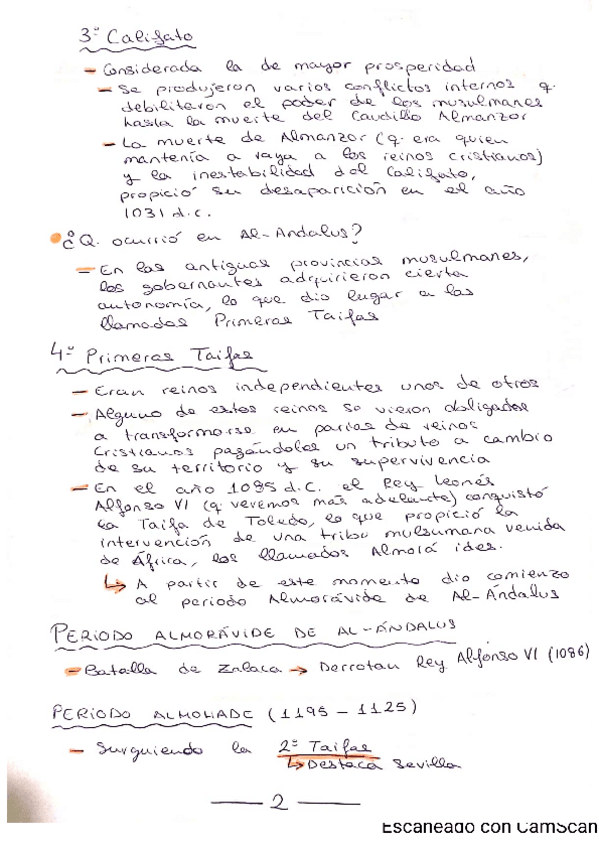 3º Califato
- Considerada la de mayor prosperidad
- Se produjeron varios conflictos internos q.
debilitaron el poder de los musulmanes
hasta la muerte del Caudillo Almanzor
- La muerte de Almanzor (q. era quien
mantenía a raya a los reinos cristianos)
y la inestabilidad del Califato,
propició su desaparición en el año
1031 d.c.
¿Q. ocurrió en Al-Andalus?
- En las antiguas provincias musulmanes,
los gobernantes adquirieron cierta
autonomía, lo que dio lugar a las
llamadas Primeras Taifas
4º Primeras Taifas
- Eran reinos independientes unos de otros
- Alguno de estos reinos se vieron obligados
a transformarse en parias de reinos
Cristianos pagándoles un tributo a cambio
de su territorio y su supervivencia
- En el año 1085 d.C. el Rey Leonés
Alfonso VI (q veremos más adelante) conquistó
la Taifa de Toledo, lo que propició la
intervención de una tribu mulsumana venida
de África, los llamados Almorá ides.
↳ A partir de este momento dio comienzo
al periodo Almorávide de Al-Ándalus
PERIODO ALMORÁVIDE DE AL-ÁNDALUS
- Batalla de Zalaca → Derrotan Rey Alfonso VI (1086)
PERIODO ALMOHADE (1195 - 1125)
- Surguiendo la 2º Taifas
↳ Destaca Sevilla
2
Escaneado con CamScan